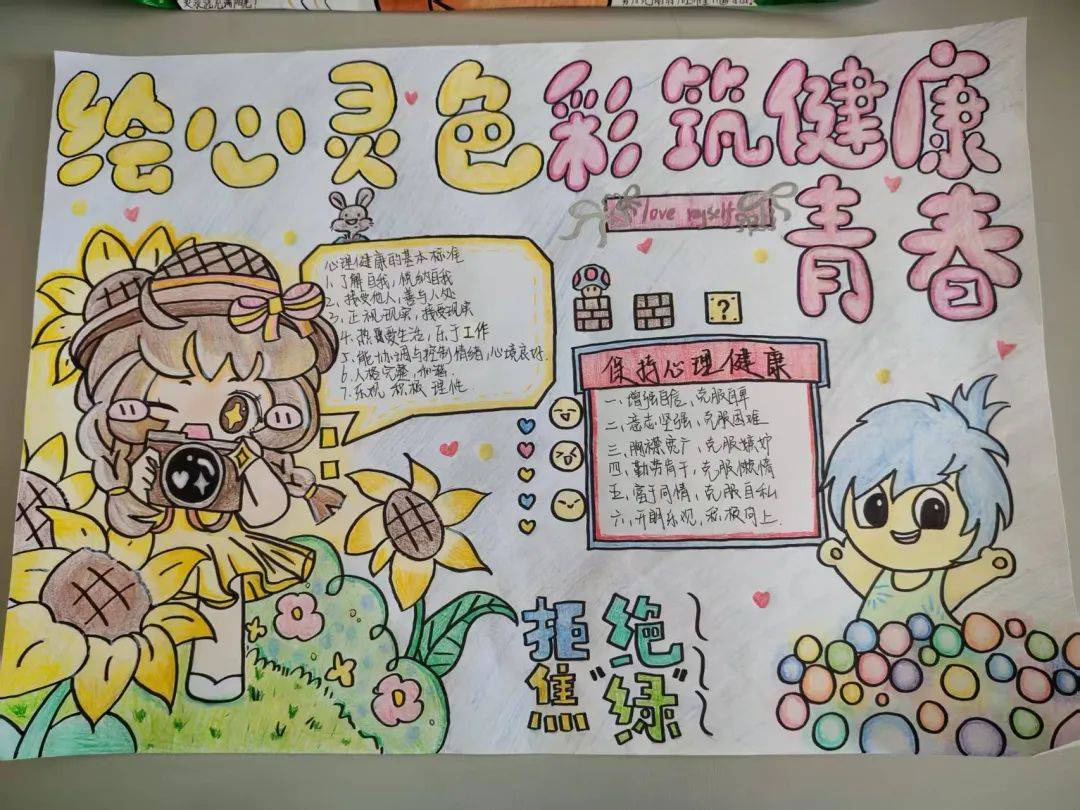 绘心灵色彩筑健康
青春
love myself
心理健康的基本标准
1、了解自我,悦纳自我
2、接受他人,善与人处
3、正视现实,接受现实
4、热爱生活,乐于工作
5、能协调与控制情绪,心境良好.
6、人格完整,和谐.
7、乐观 积极 理性
?
保持心理健康
一、增强自信、克服自卑
二、意志坚强、克服困难
三、胸襟宽广、克服嫉妒
四、勤劳肯干、克服懒惰
五、富于同情、克服自私
六、开朗乐观、积极向上.
拒绝
焦"绿"